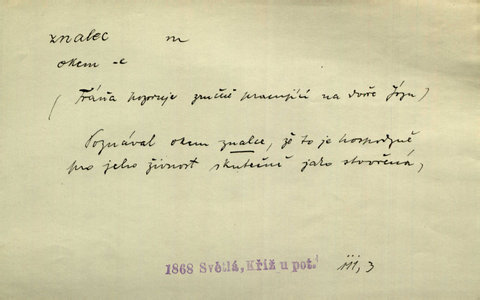 znalec m
okem -e
(Fráňa pozoruje zručně pracující na dvoře Józu)
Poznával okem znalce, že to je hospodyně
pro jeho živnost skutečně jako stvořená,
1868 Světlá, Kříž u pot. III, 3